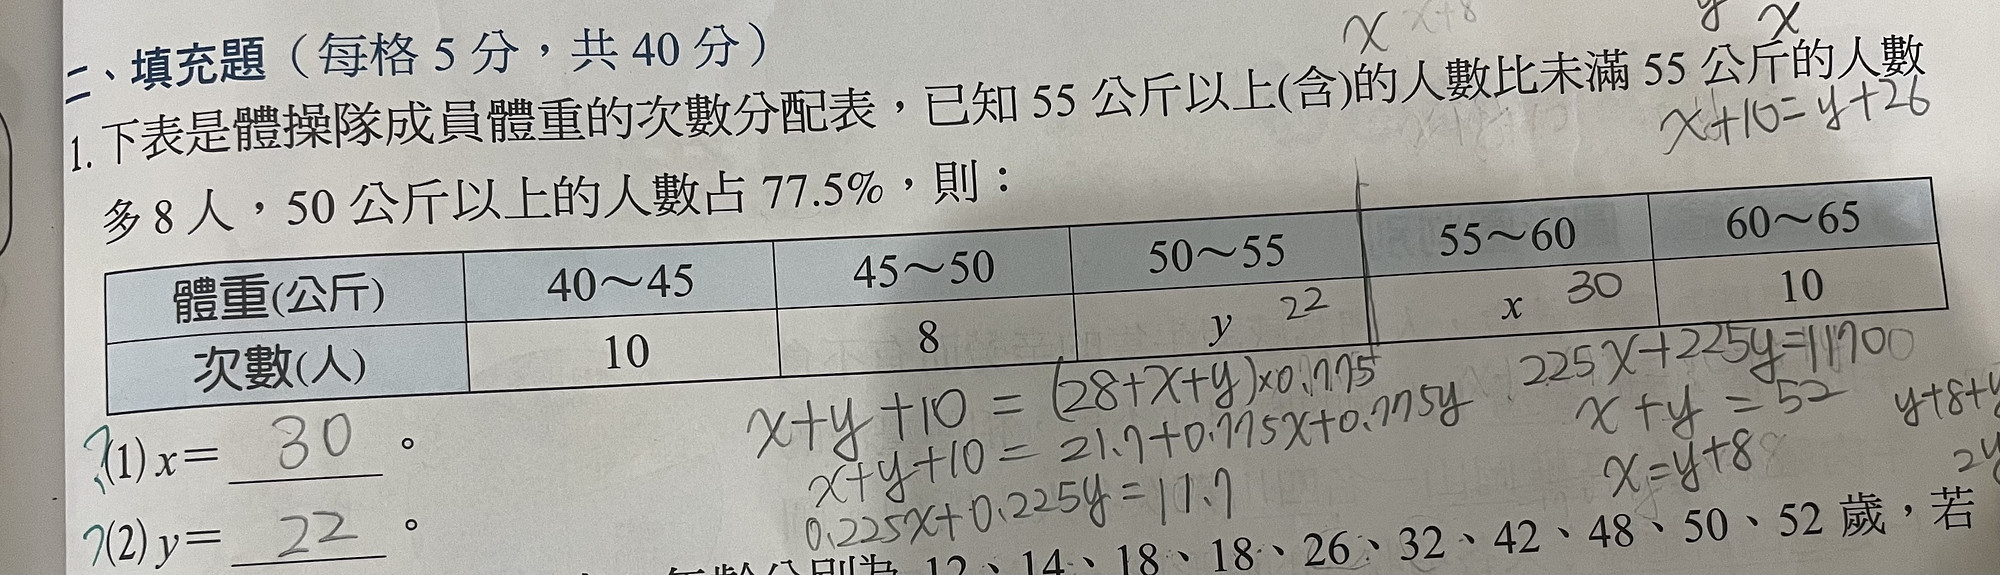 x x+8 y x
二、填充題（每格 5 分，共 40 分）
1. 下表是體操隊成員體重的次數分配表，已知 55 公斤以上(含)的人數比未滿 55 公斤的人數
x+10=y+26
多 8 人，50 公斤以上的人數占 77.5%，則：
體重(公斤) 40～45 45～50 50～55 55～60 60～65
次數(人) 10 8 y 22 x 30 10
x+y+10=(28+x+y)×0.775
x+y+10=21.7+0.775x+0.775y
0.225x+0.225y=11.7
225x+225y=11700
x+y=52
x=y+8
y+8+y
2y
?(1) x= 30 。
?(2) y= 22 。
年齡分別為 12、14、18、18、26、32、42、48、50、52 歲，若